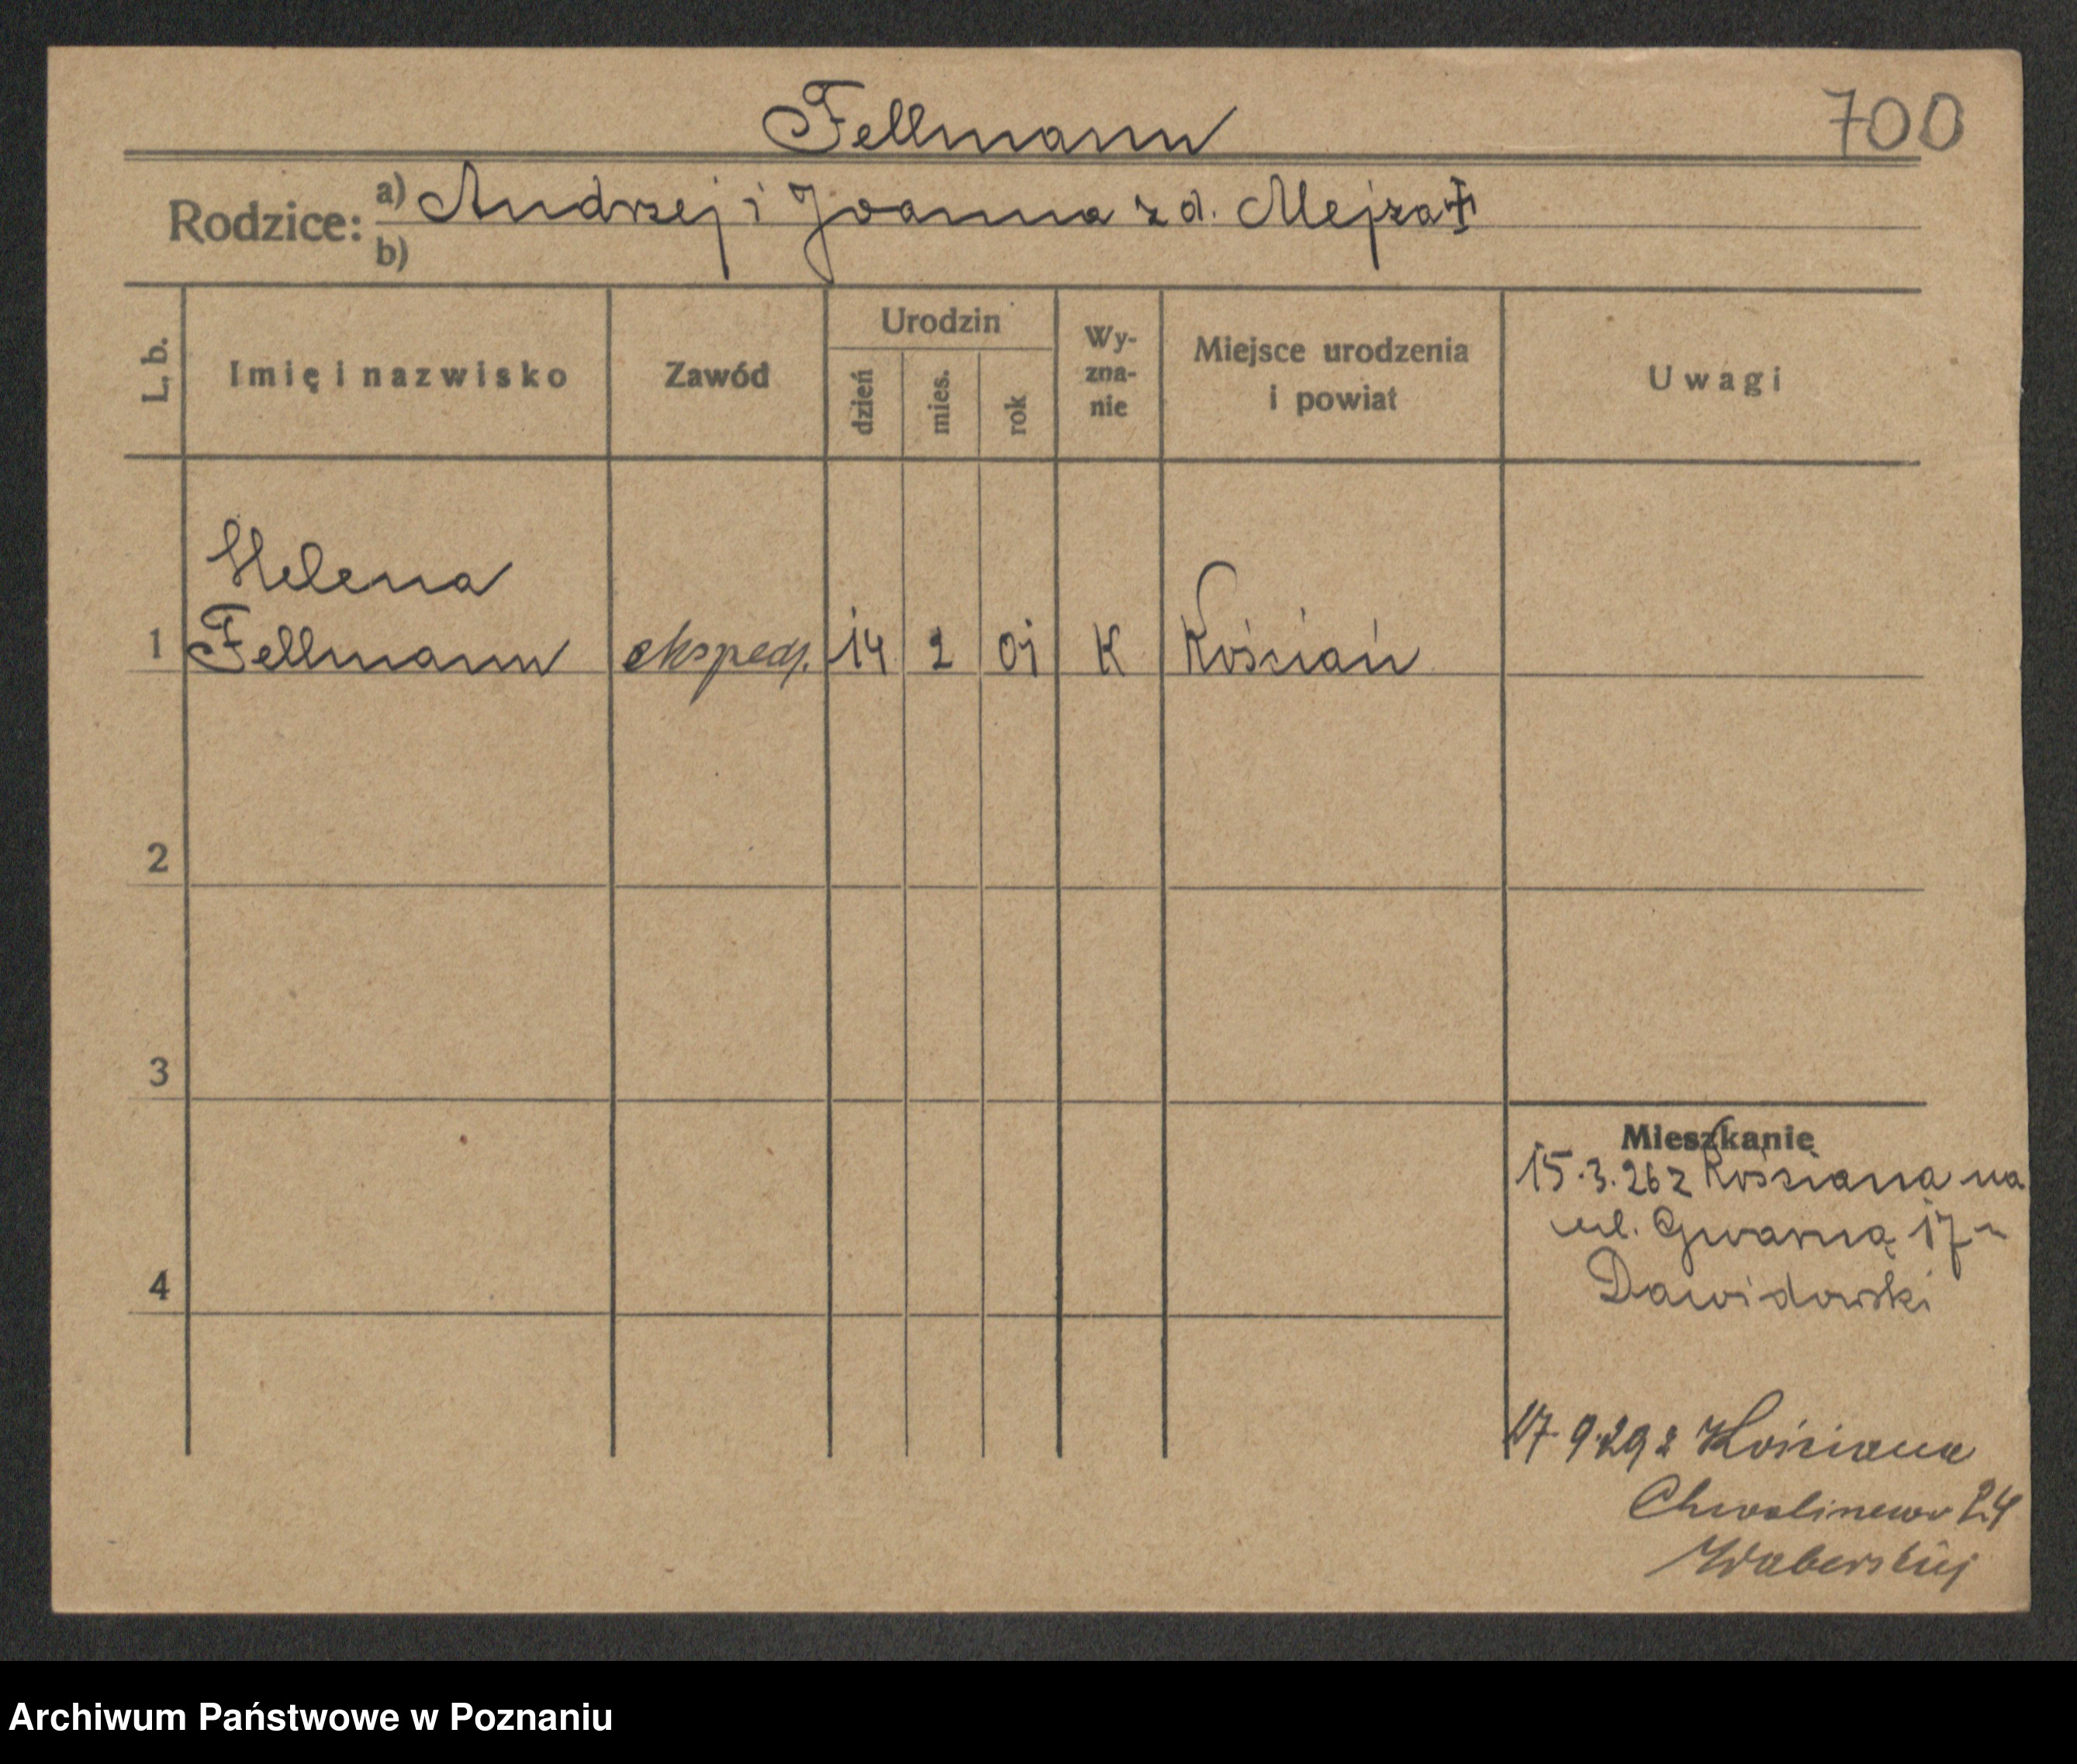 Fellmann
700
Rodzice: a) Andrzej i Joanna z d. Mejza
b)
L. b.
Imię i nazwisko
Zawód
Urodzin
dzień
mies.
rok
Wy-
zna-
nie
Miejsce urodzenia
i powiat
Uwagi
Helena
1 Fellmann eksped. 14 2 01 K Kościań
2
3
4
Mieszkanie
15.3.26 z Kościana na
ul. Gwarną 17
Dawidowski
17 9.29 z Kościana
24
Archiwum Państwowe w Poznaniu